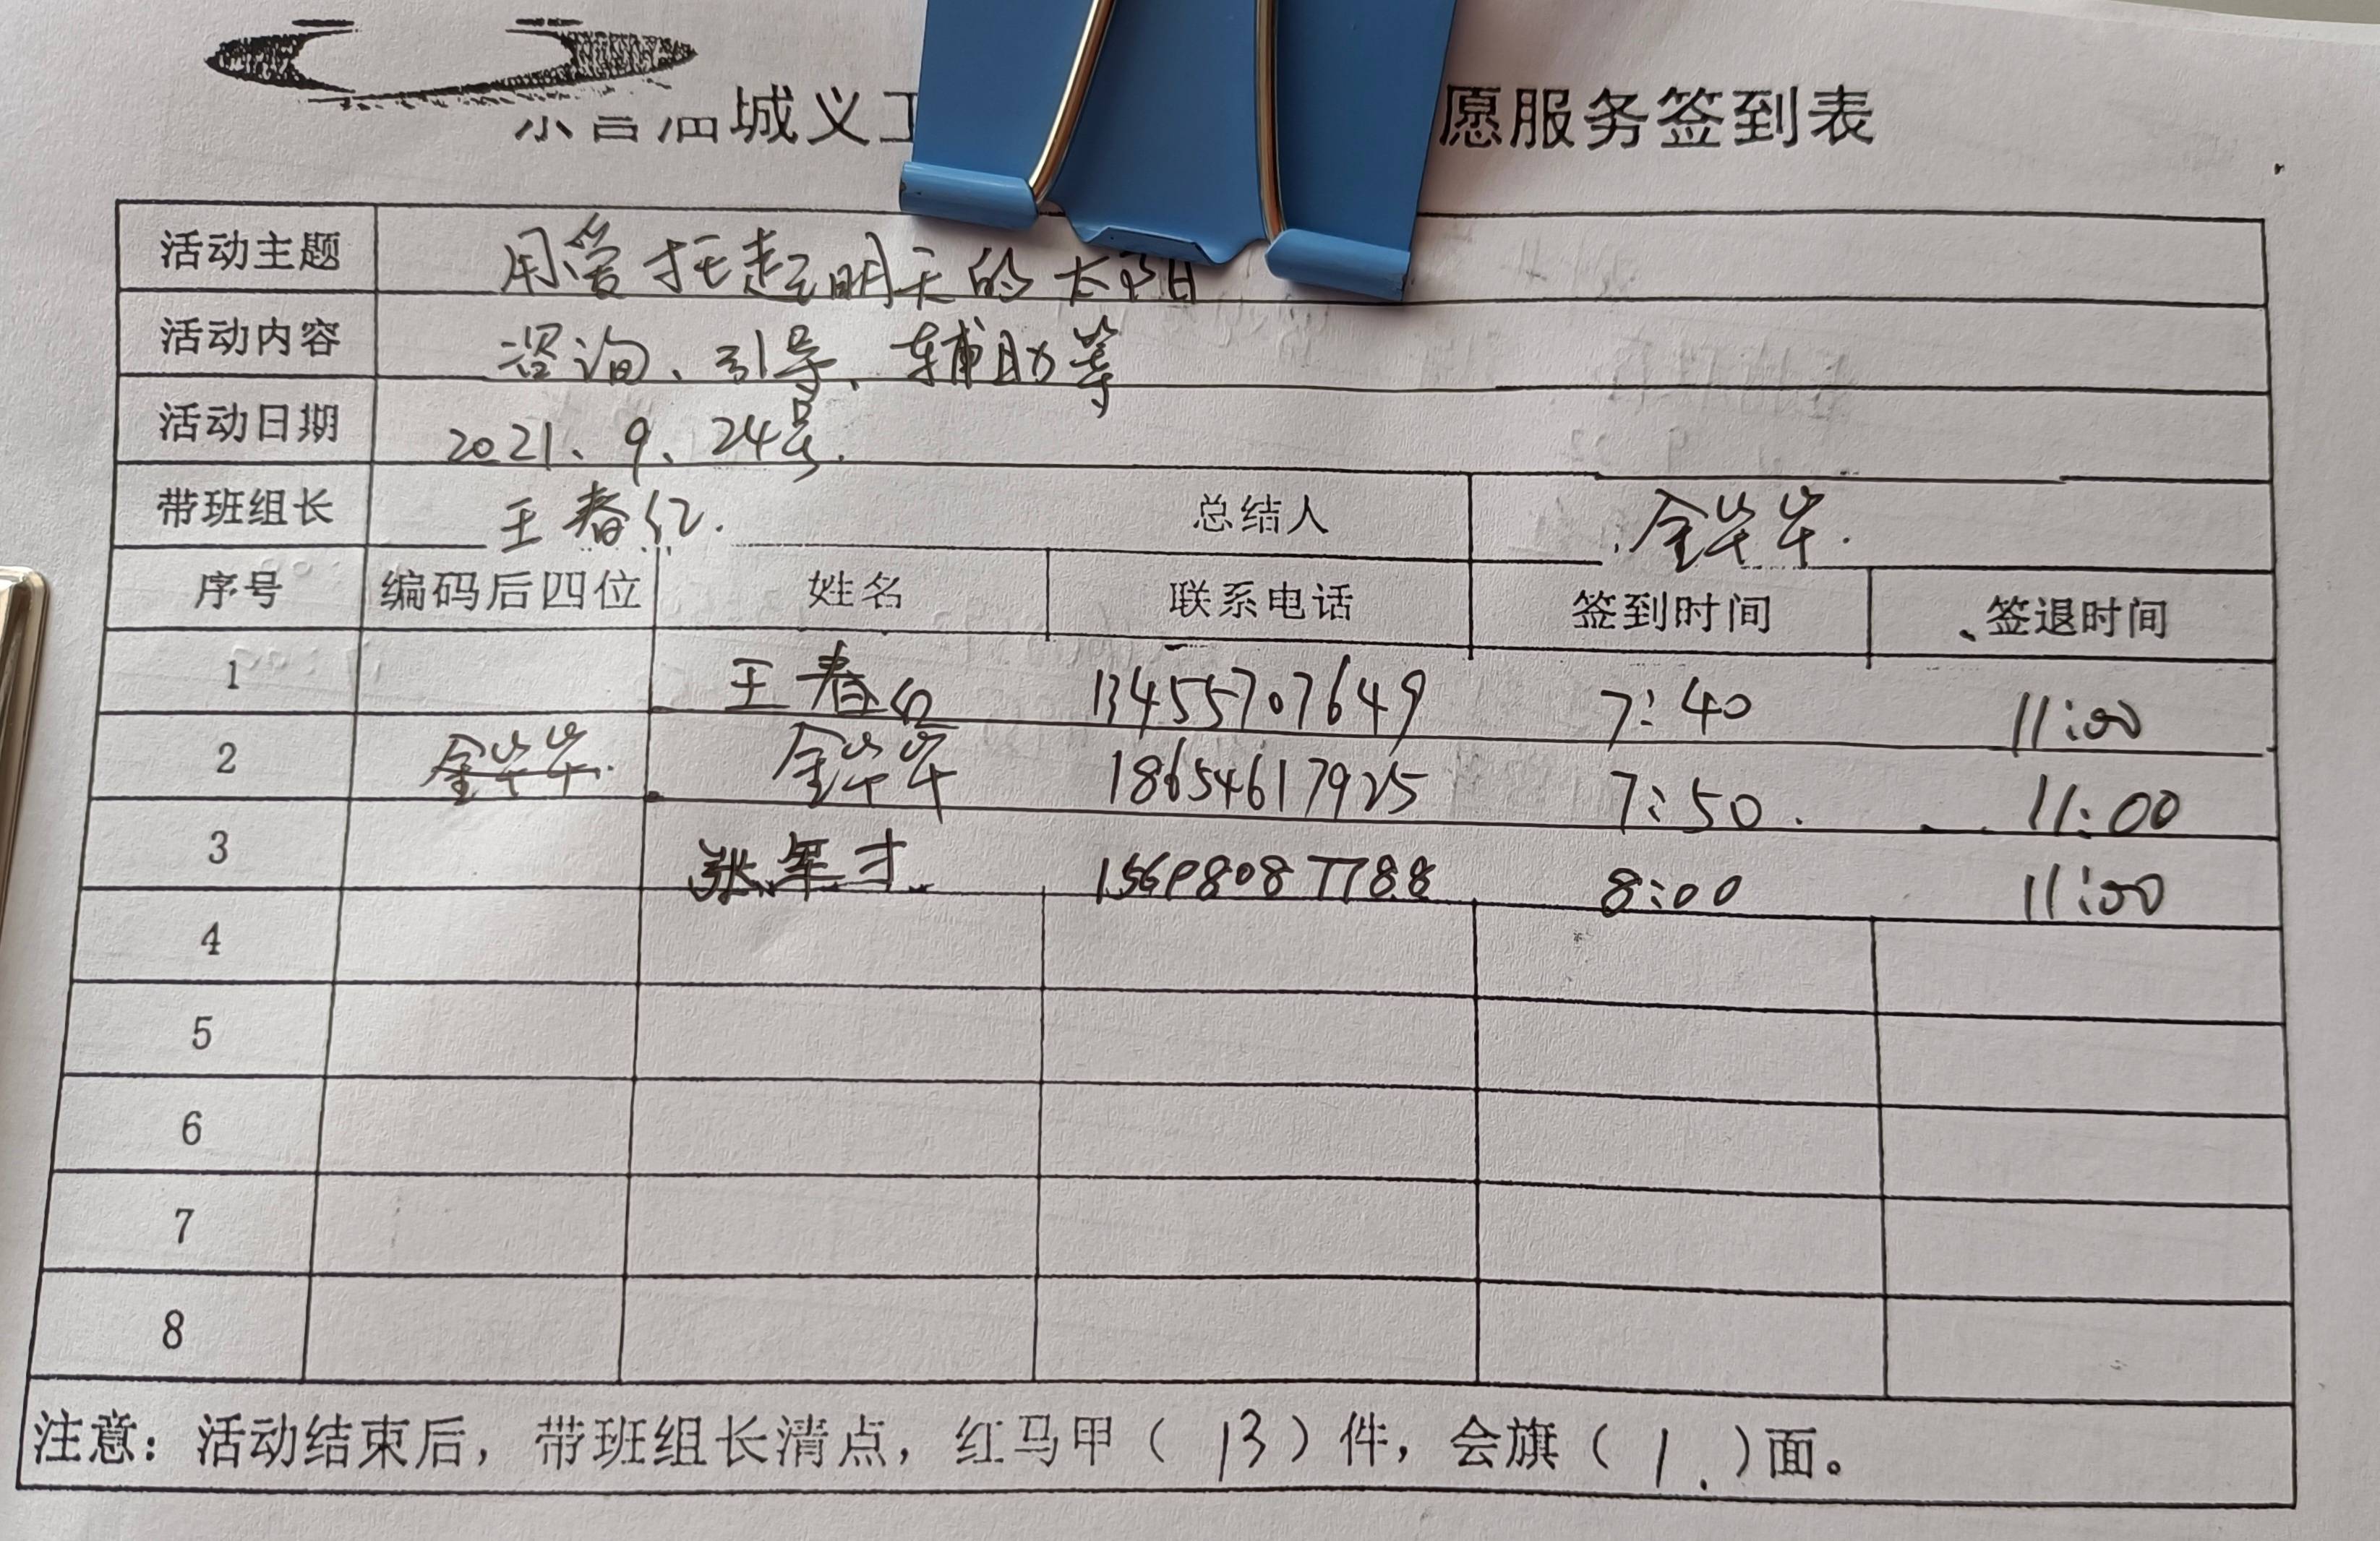 东营油城义工
愿服务签到表
活动主题 用爱托起明天的太阳
活动内容 咨询、引导、辅助等
活动日期 2021、9、24号.
带班组长 王春红. 总结人 金毕毕.
序号 编码后四位 姓名 联系电话 签到时间 签退时间
1 王春红 13455707649 7:40 11:00
2 金毕毕. 金毕毕 18654617925 7:50. 11:00
3 张军才 8:00 11:00
4
5
6
7
8
注意：活动结束后，带班组长清点，红马甲（13）件，会旗（1.）面。